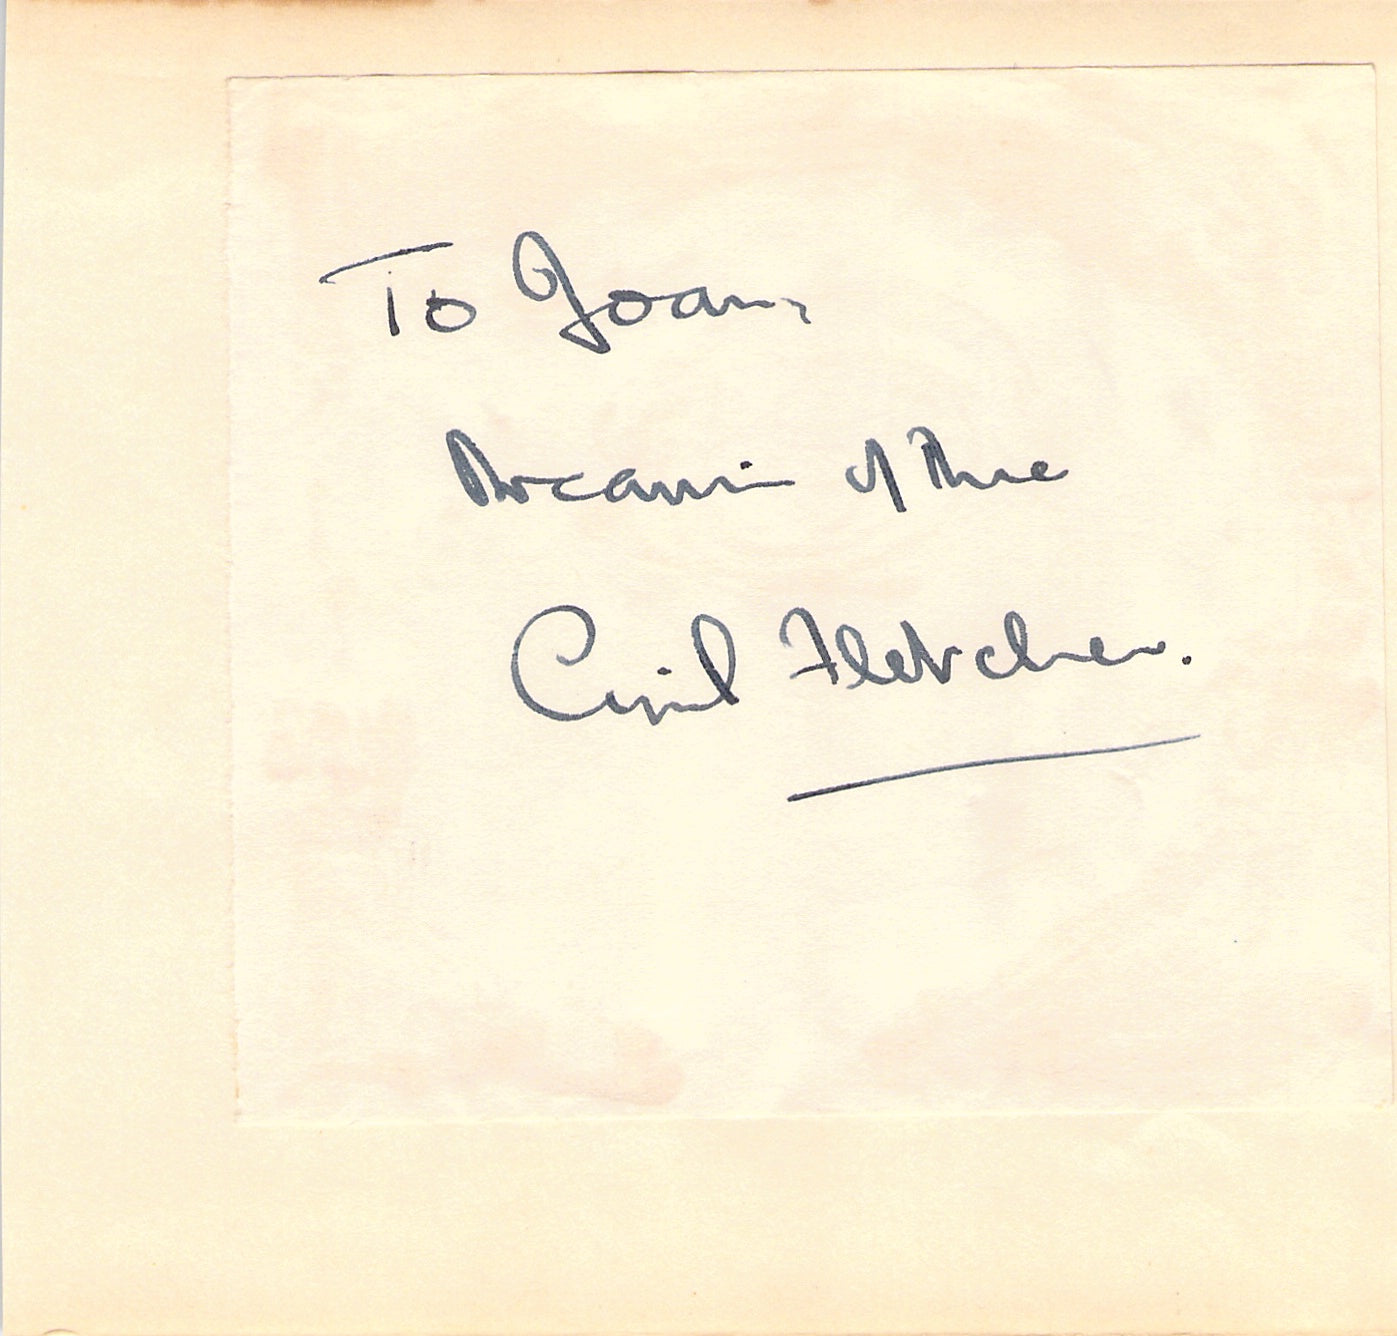 To Joan,
Dreamin of Thee
Cyril Fletcher.